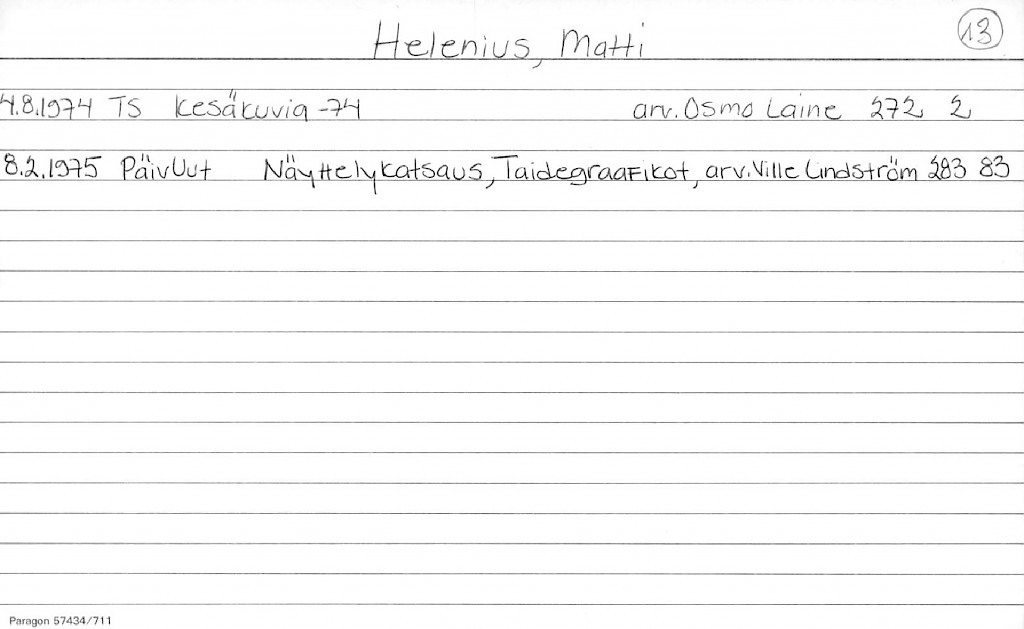 Helenius, Matti
13
4.8.1974 TS Kesäkuvia -74 arv. Osmo Laine 272 2
8.2.1975 PäivUut Näyttelykatsaus, Taidegraafikot, arv. Ville Lindström 283 83
Paragon 57434/711